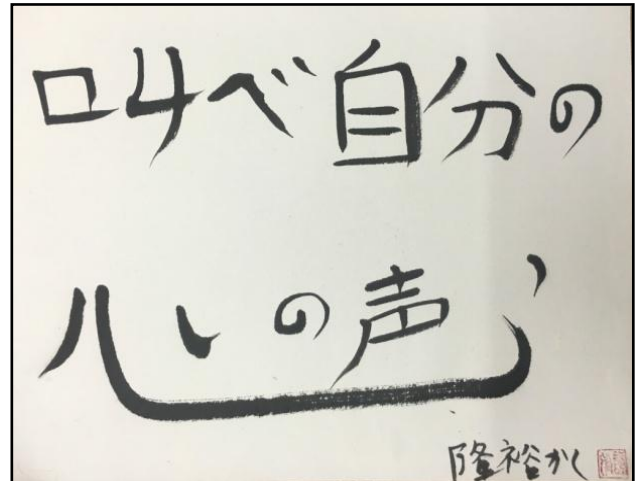 叫べ自分の
心の声
隆裕かく